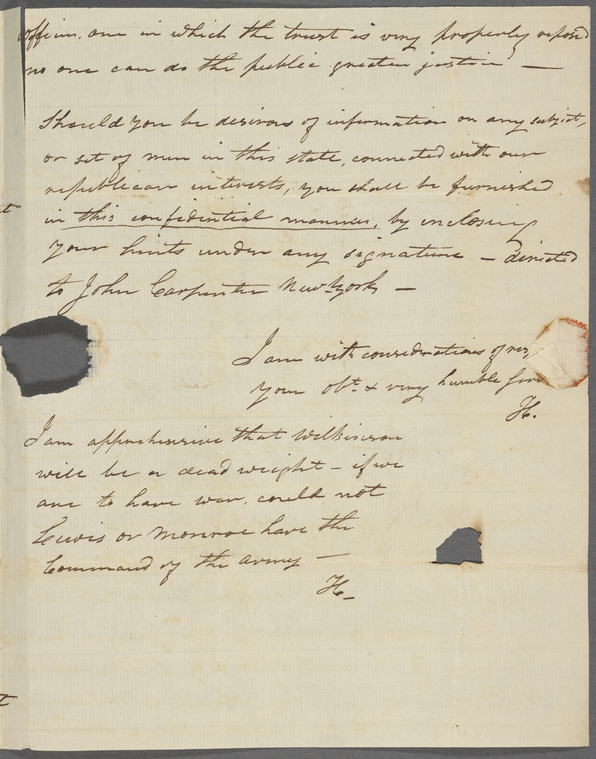 officer, one in which the trust is very properly reposed
no one can do the public greater justice —
Should you be desirous of information on any subject,
or set of men in this state, connected with our
republican interests, you shall be furnished
in this confidential manner, by inclosing
your hints under any signature — directed
to John Carpenter New-York —
I am with considerations of
your obt. & very humble
H.
I am apprehensive that Wilkinson
will be a dead weight — if we
are to have war, could not
Lewis or Monroe have the
Command of the army —
H—
t
t